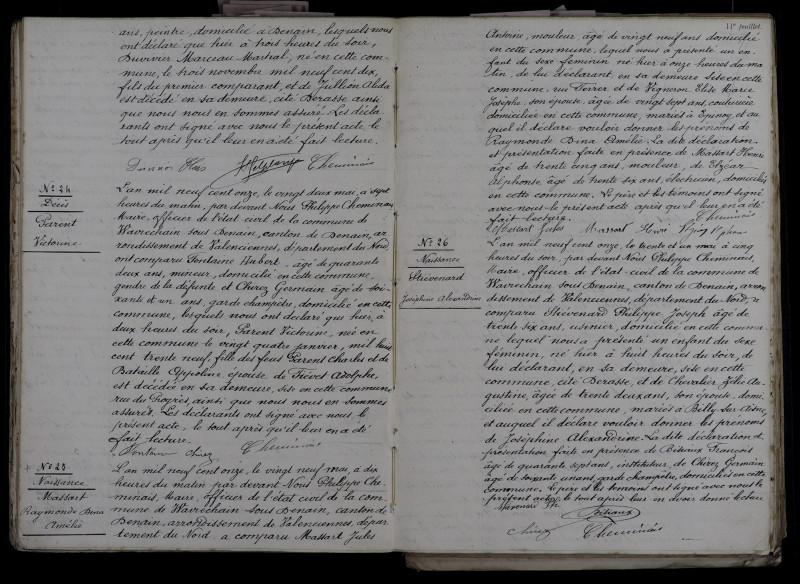 ans, peintre, domicilié à Denain, lesquels nous
ont déclaré que hier à trois heures du soir,
Duvivier Marceau Martial, né en cette com-
mune, le trois novembre mil neuf cent dix,
fils du premier comparant, et de Jullion Alida
est décédé en sa demeure, cité Berasse ainsi
que nous nous en sommes assuré. Les décla-
rants ont signé avec nous le présent acte, le
tout après qu'il leur en a été fait lecture.
Cheminais
N° 24
Décès
Parent
Victorine
L'an mil neuf cent onze, le vingt deux mai, à sept
heures du matin, par devant Nous Philippe Cheminais
Maire, officier de l'état civil de la commune de
Wavrechain sous Denain, canton de Denain, ar-
rondissement de Valenciennes, département du Nord
ont comparu Fontaine Hubert, âgé de quarante
deux ans, mineur, domicilié en cette commune,
gendre de la défunte et Chirez Germain âgé de soi-
xante et un ans, garde champêtre, domicilié en cette
commune, lesquels nous ont déclaré que hier, à
deux heures du soir, Parent Victorine, née en
cette commune le vingt quatre janvier, mil huit
cent trente neuf, fille des feus Parent Charles et de
Bataille Appoline épouse, de Adolphe,
est décédée en sa demeure, sise en cette commune
rue du Progrès, ainsi que nous nous en sommes
assurés. Les déclarants ont signé avec nous le
présent acte, le tout après qu'il leur en a été
fait lecture.
Fontaine Chirez Cheminais
N° 25
Naissance
Massart
Raymonde Dina
Amélie
L'an mil neuf cent onze, le vingt neuf mai, à dix
heures du matin par devant Nous Philippe Che-
minais, Maire, officier de l'état civil de la com-
mune de Wavrechain sous Denain, canton de
Denain, arrondissement de Valenciennes, dépar-
tement du Nord a comparu Massart Jules
11e feuillet.
Antoine, mouleur, âgé de vingt neuf ans domicilié
en cette commune, lequel nous a présenté un en-
fant du sexe féminin né hier à onze heures du ma-
tin, de lui déclarant, en sa demeure sise en cette
commune, rue Ferrer et de Vigneron Elise Marie
Josèphe, son épouse, âgée de vingt sept ans, couturière
domiciliée en cette commune, mariés à Epinoy, et au
quel il déclare vouloir donner les prénoms de
Raymonde Dina Amélie. La dite déclaration
et présentation faite en présence de Massart Henri
âgé de trente cinq ans, mouleur, de Elzéar
Alphonse, âgé de trente six ans, électricien, domiciliés
en cette commune. Le père et les témoins ont signé
avec nous le présent acte après qu'il leur en a été
fait lecture. Cheminais
Massart Jules Massart Henri
N° 26
Naissance
Stiévenard
Joséphine Alexandrine
L'an mil neuf cent onze, le trente et un mai à cinq
heures du soir, par devant Nous Philippe Cheminais,
Maire, officier de l'état-civil de la commune de
Wavrechain sous Denain, canton de Denain, arron
dissement de Valenciennes, département du Nord, a
comparu Stiévenard Philippe Joseph âgé de
trente six ans, usinier, domicilié en cette commu-
ne lequel nous a présenté un enfant du sexe
féminin, né hier à huit heures du soir, de
lui déclarant, en sa demeure, sise en cette
commune, cité Berasse, et de Chevalier Zélie Au-
gustine, âgée de trente deux ans, son épouse, domi-
ciliée en cette commune, mariés à Billy sur Aisne,
et auquel il déclare vouloir donner les prénoms
de Joséphine Alexandrine. La dite déclaration et
présentation faite en présence de Bétaux François
âgé de quarante sept ans, instituteur, de Chirez Germain
âgé de soixante et un ans garde champêtre, domiciliés en cette
commune. Le père et les témoins ont signé avec nous le
présent acte, le tout après leur en avoir donné lecture
Stiévenard Ph. Bétaux
Chirez Cheminais